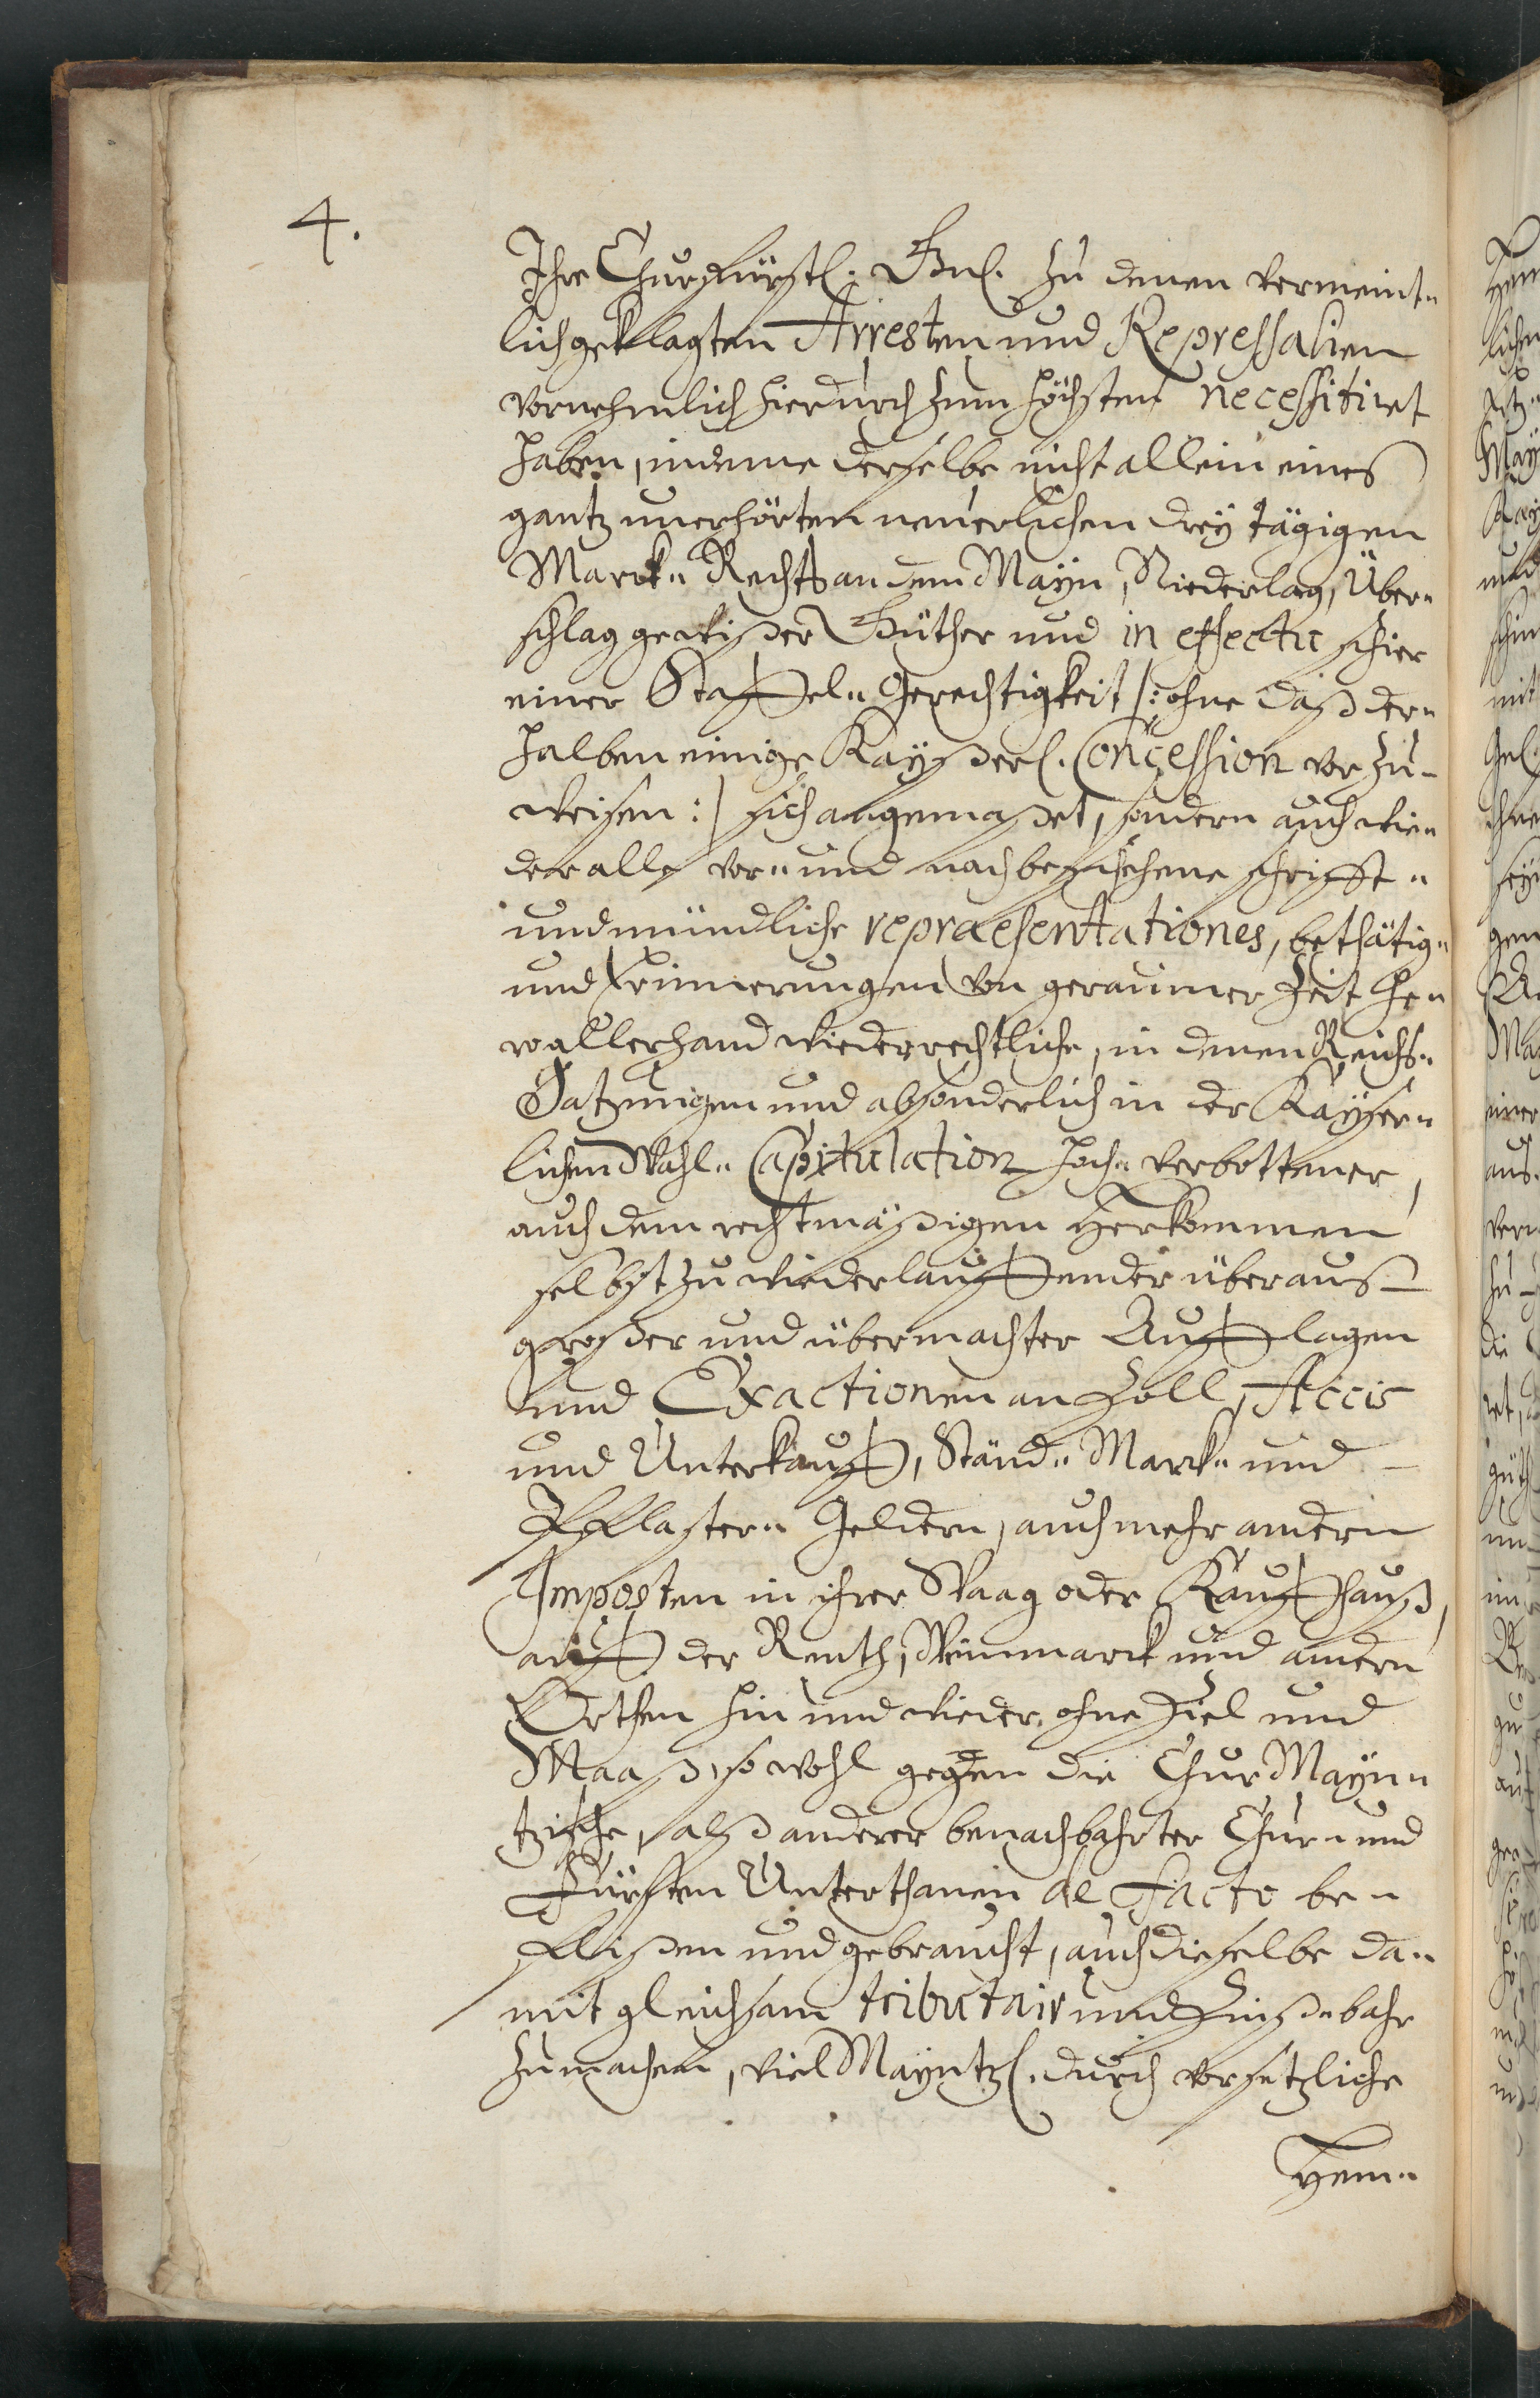 4.
Ihre Churfürstl. Gnl. zu denen vermeint-
lich geklagten Arresten und Repressalien
vornehmlich hierdurch zum höchsten necessitiret
haben, indeme derselbe nicht allein eines
gantz unerhörten neuerlichen dreÿ tägigen
Marck- Rechts an dem Maÿn, Niederlag, Über-
schlag gewißer Güther und in effectu schier
einer Staffel- Gerechtigkeit /: ohne daß der-
halben einige Kaÿßerl. Concession vorzu-
weisen :/ sich angemaßet, sondern auch wie-
der alle vor- und nach beschehene schrifft-
und mündliche repraesentationes, bethätig-
und Erinnerungen von geraumer Zeit he-
ro allerhand wiederrechtliche, in denen Reichs-
Satzungen und absonderlich in der Kaÿser-
lichen Wahl- Capitulation hoch- verbottener,
auch dem rechtmäßigen Herkommen
selbst zu wiederlauffender überaus
großer und übermachter Aufflagen
und Exactionen an Zoll, Accis
und Unterkauff, Ständ- Marck- und
Pflaster- Geldern, auch mehr andern
Imposten in ihrer Waag oder Kauffhauß,
auff der Renth, Weinmarck und andern
Orthen hin und wieder, ohne Ziel und
Maaß, so wohl gegen die Chur Maÿn-
tzische, alß anderer benachbahrter Chur- und
Fürsten Unterthanen de facto be-
flißen und gebraucht, auch dieselbe da-
mit gleichsam tributair und Zinß- bahr
zu machen, viel Maÿntzl. durch vorsetzliche
Hem-